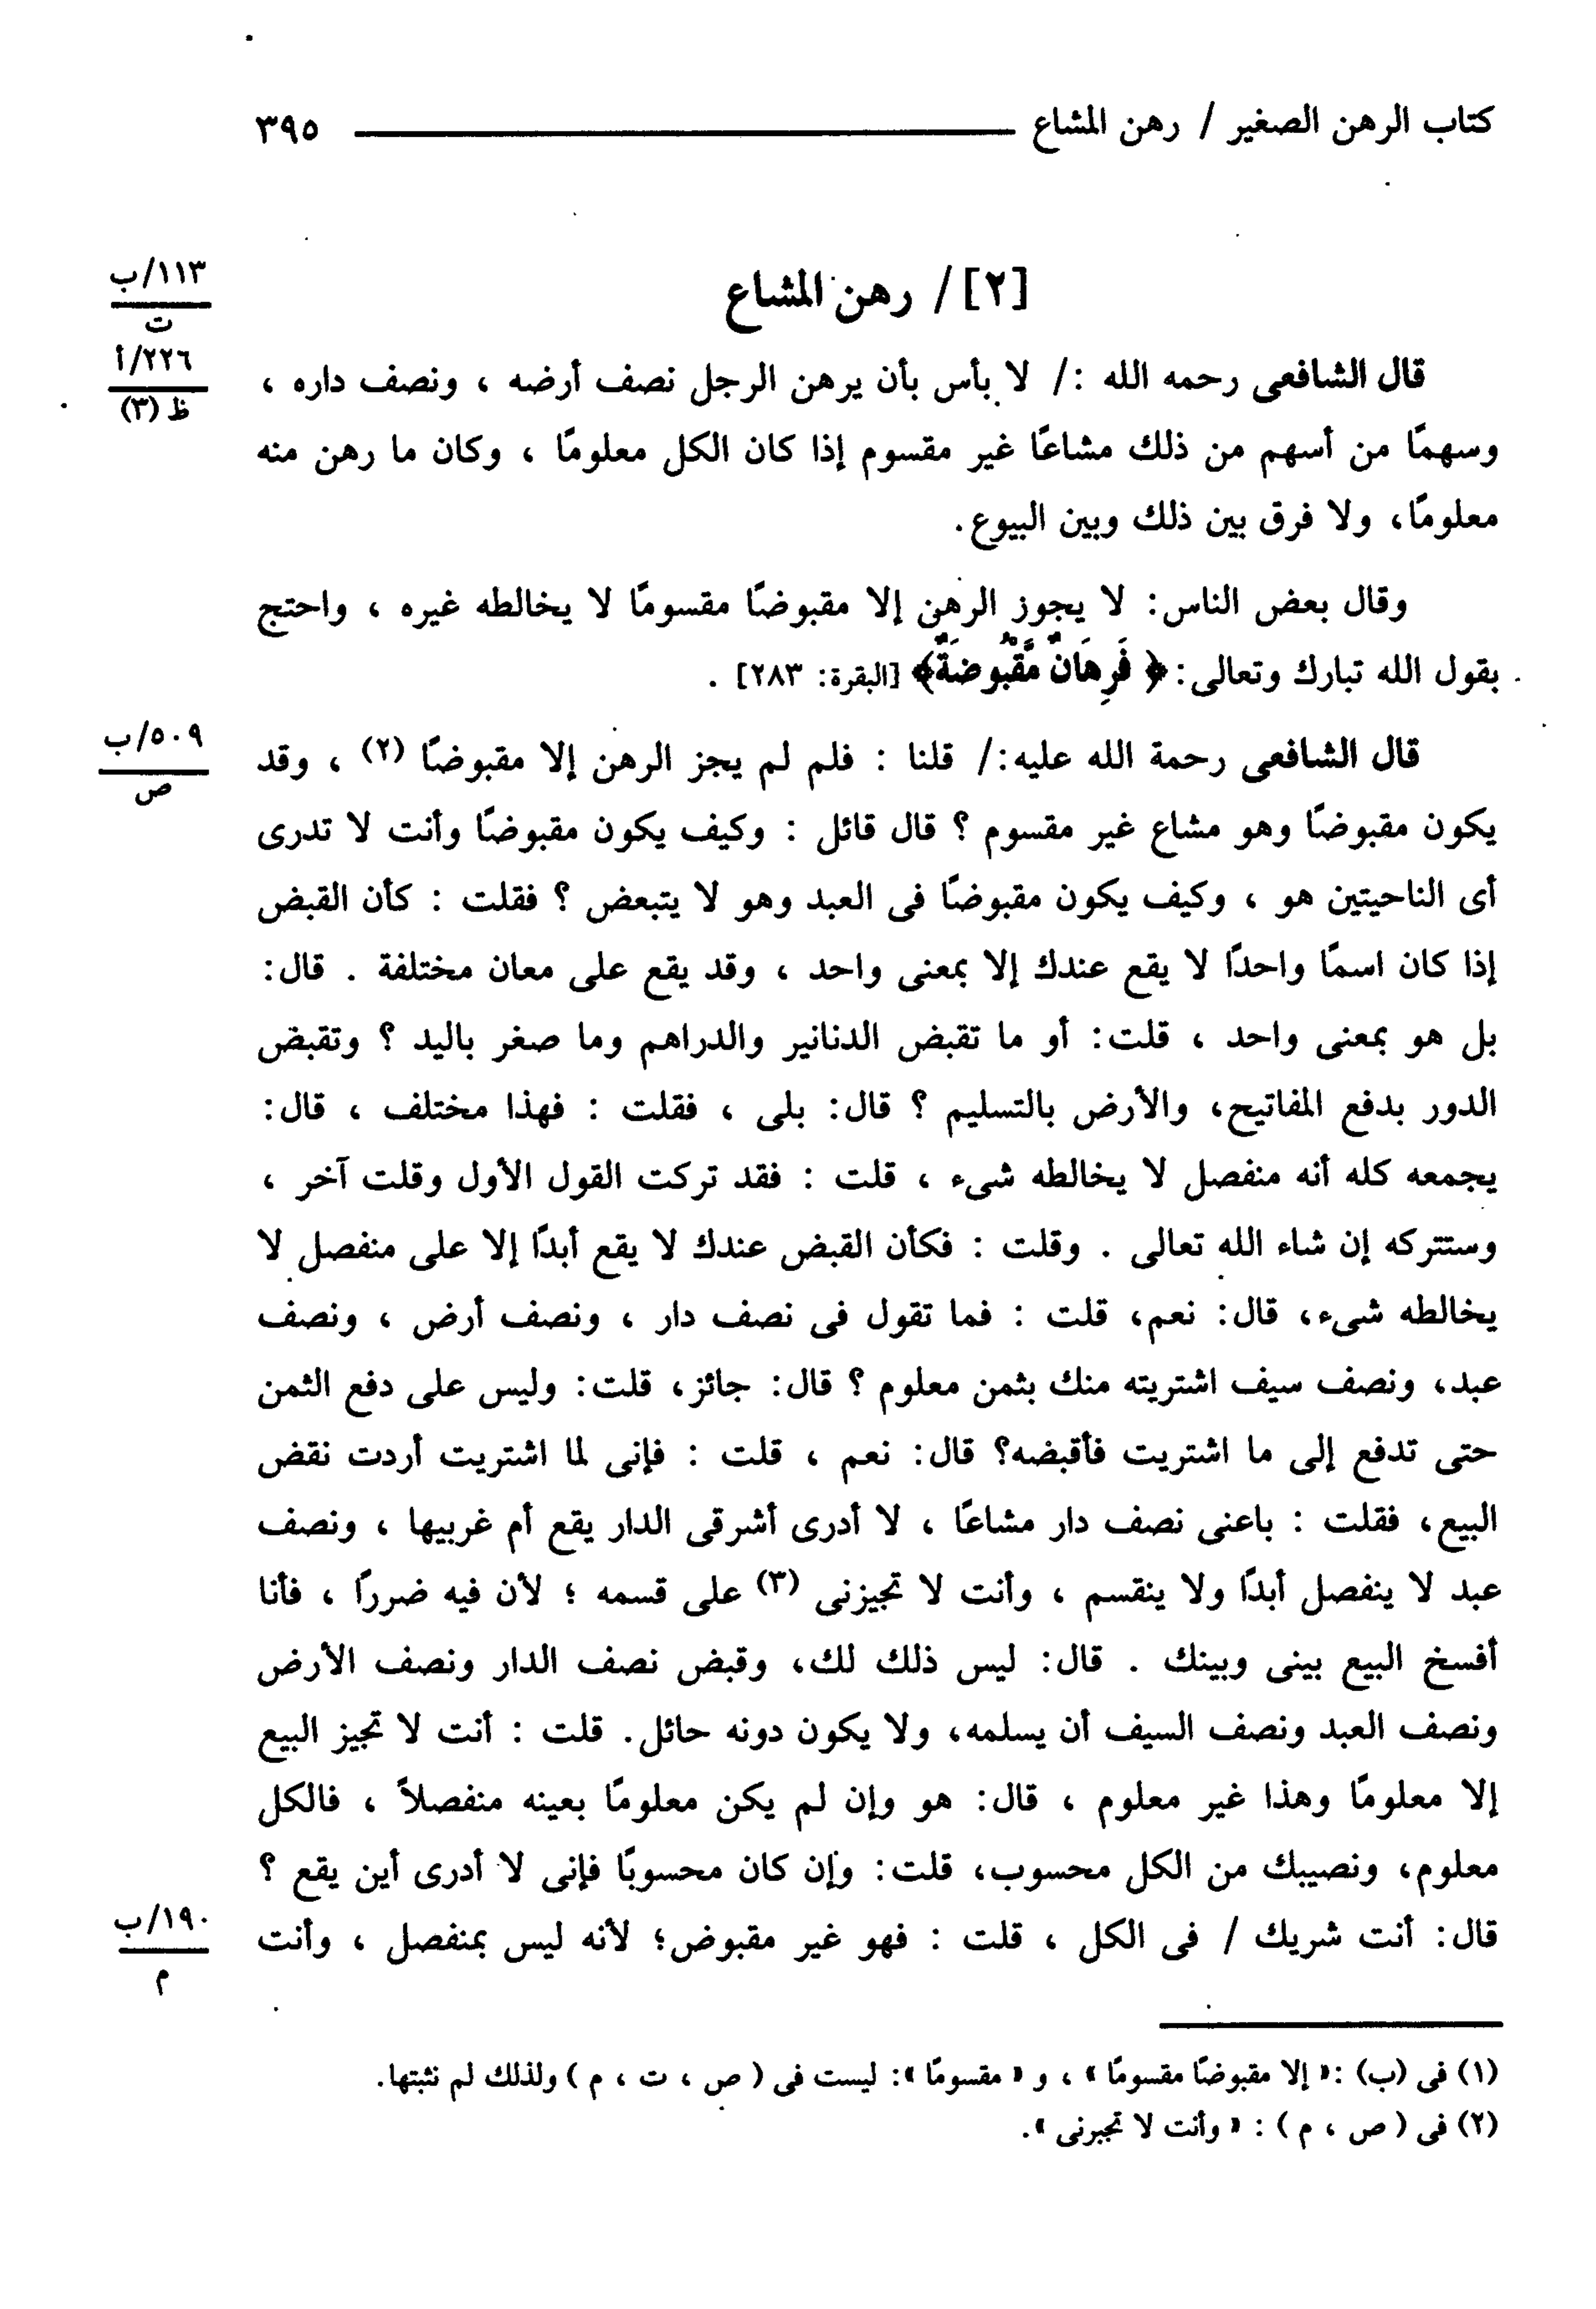 كتاب الرهن الصغير / رهن المشاع ٣٩٥
[٢] / رهن المشاع
١١٣/ب
ت
٢٢٦/أ
ظ (٣)
قال الشافعى رحمه الله :/ لا بأس بأن يرهن الرجل نصف أرضه ، ونصف داره ،
وسهمًا من أسهم من ذلك مشاعًا غير مقسوم إذا كان الكل معلومًا ، وكان ما رهن منه
معلومًا، ولا فرق بين ذلك وبين البيوع.
وقال بعض الناس: لا يجوز الرهن إلا مقبوضًا مقسومًا لا يخالطه غيره ، واحتج
بقول الله تبارك وتعالى: ﴿ فَرِهَانٌ مَّقْبُوضَةٌ﴾ [البقرة: ٢٨٣] .
٥٠٩/ب
ص
قال الشافعى رحمة الله عليه:/ قلنا : فلم لم يجز الرهن إلا مقبوضًا (٢) ، وقد
يكون مقبوضًا وهو مشاع غير مقسوم ؟ قال قائل : وكيف يكون مقبوضًا وأنت لا تدرى
أى الناحيتين هو ، وكيف يكون مقبوضًا فى العبد وهو لا يتبعض ؟ فقلت : كأن القبض
إذا كان اسمًا واحدًا لا يقع عندك إلا بمعنى واحد ، وقد يقع على معان مختلفة . قال:
بل هو بمعنى واحد ، قلت: أو ما تقبض الدنانير والدراهم وما صغر باليد ؟ وتقبض
الدور بدفع المفاتيح، والأرض بالتسليم ؟ قال: بلى ، فقلت : فهذا مختلف ، قال:
يجمعه كله أنه منفصل لا يخالطه شىء ، قلت : فقد تركت القول الأول وقلت آخر ،
وستتركه إن شاء الله تعالى . وقلت : فكأن القبض عندك لا يقع أبدًا إلا على منفصل لا
يخالطه شىء، قال: نعم، قلت : فما تقول فى نصف دار ، ونصف أرض ، ونصف
عبد، ونصف سيف اشتريته منك بثمن معلوم ؟ قال: جائز، قلت: وليس على دفع الثمن
حتى تدفع إلى ما اشتريت فأقبضه؟ قال: نعم ، قلت : فإنى لما اشتريت أردت نقض
البيع، فقلت : باعنى نصف دار مشاعًا ، لا أدرى أشرقى الدار يقع أم غربيها ، ونصف
عبد لا ينفصل أبدًا ولا ينقسم ، وأنت لا تجيزنى (٣) على قسمه ؛ لأن فيه ضررًا ، فأنا
أفسخ البيع بينى وبينك . قال: ليس ذلك لك، وقبض نصف الدار ونصف الأرض
ونصف العبد ونصف السيف أن يسلمه، ولا يكون دونه حائل. قلت : أنت لا تجيز البيع
إلا معلومًا وهذا غير معلوم ، قال: هو وإن لم يكن معلومًا بعينه منفصلاً ، فالكل
معلوم، ونصيبك من الكل محسوب، قلت: وإن كان محسوبًا فإنى لا أدرى أين يقع ؟
١٩٠/ب
م
قال: أنت شريك / فى الكل ، قلت : فهو غير مقبوض؛ لأنه ليس بمنفصل ، وأنت
(١) فى (ب) :« إلا مقبوضًا مقسومًا » ، و « مقسومًا »: ليست فى ( ص ، ت ، م ) ولذلك لم نثبتها.
(٢) فى ( ص ، م ) : « وأنت لا تجبرنى ».